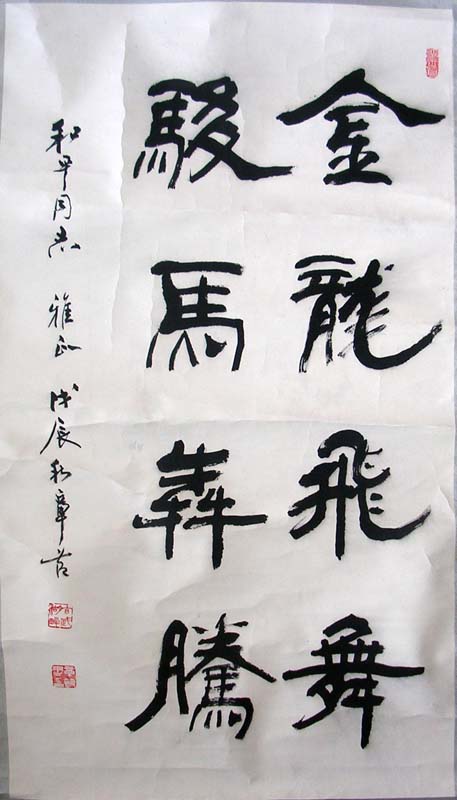 金龍飛舞
駿馬犇騰
和平同志 雅正 戊辰秋章